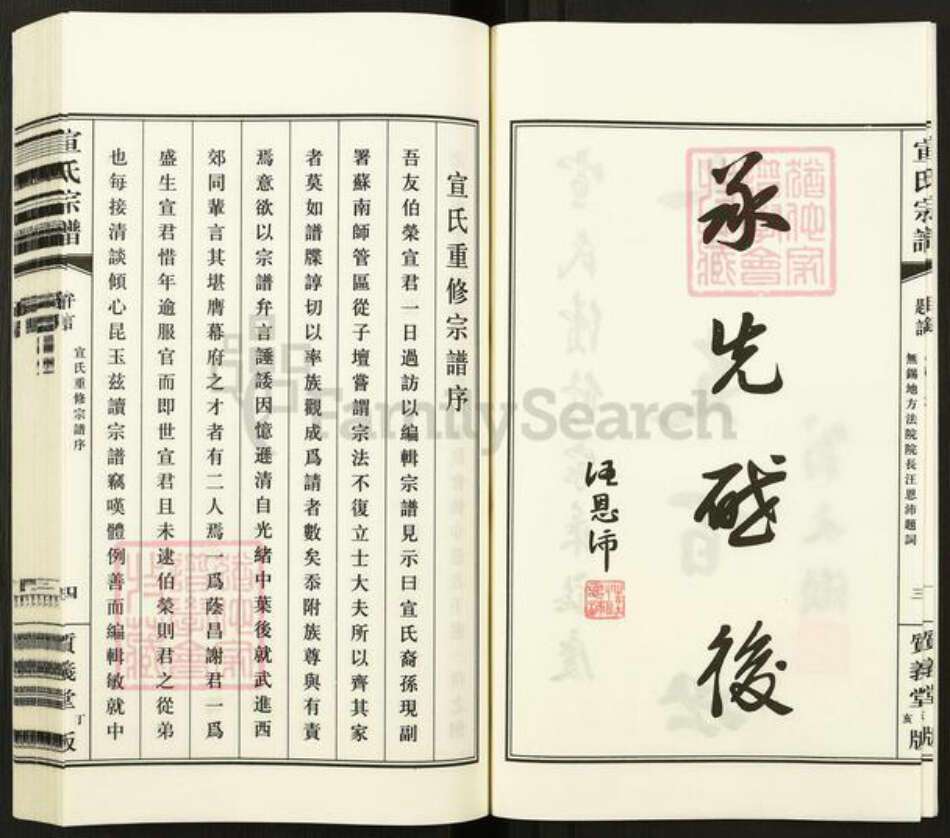 宣氏宗譜
題詞
無錫地方法院院長汪恩沛題詞
三
質義堂
亥
版
承先啟後
汪恩沛
宣氏重修宗譜序
吾友伯榮宣君一日過訪以編輯宗譜見示曰宣氏裔孫現副
署蘇南師管區從子壇嘗謂宗法不復立士大夫所以齊其家
者莫如譜牒諄切以率族觀成爲請者數矣忝附族尊與有責
焉意欲以宗譜弁言諈諉因憶遜清自光緒中葉後就武進西
郊同輩言其堪膺幕府之才者有二人焉一爲蔭昌謝君一爲
盛生宣君惜年逾服官而即世宣君且未逮伯榮則君之從弟
也每接清談傾心昆玉茲讀宗譜竊嘆體例善而編輯敏就中
宣氏宗譜
弁言
宣氏重修宗譜序
質義堂
丁
版
FamilySearch